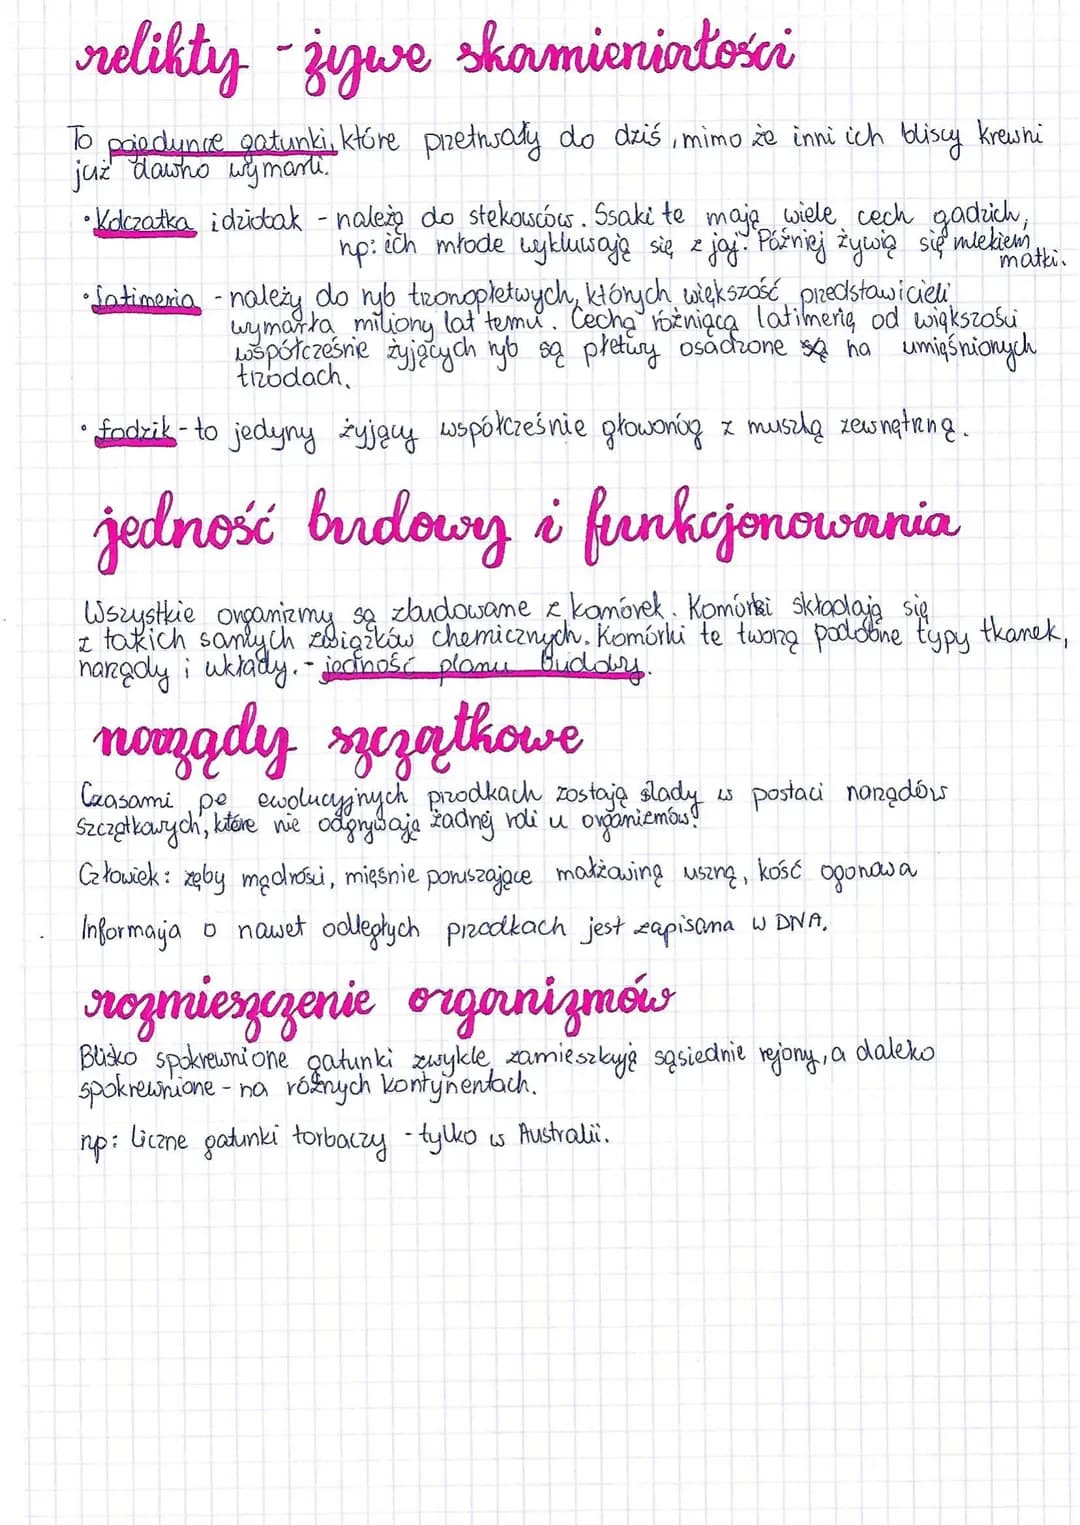 relikty - żywe skamieniałości
To pojedyncze gatunki, które przetrwały do dziś, mimo że inni ich bliscy krewni
już dawno wymarli.
• Kolczatka i dziobak - należą do stekowców. Ssaki te mają wiele cech gadzich,
np: ich młode wykluwają się z jaj. Później żywią się mlekiem
matki.
• latimeria - należy do ryb trzonopłetwych, których większość przedstawicieli
wymarła miliony lat temu. Cechą różniącą latimerię od większości
współcześnie żyjących ryb są płetwy osadzone są na umięśnionych
trzodach.
• łodzik - to jedyny żyjący współcześnie głowonóg z muszlą zewnętrzną.
jedność budowy i funkcjonowania
Wszystkie organizmy są zbudowane z komórek. Komórki składają się
z takich samych związków chemicznych. Komórki te tworzą podobne typy tkanek,
narządy i układy. - jedność planu budowy.
narządy szczątkowe
Czasami po ewolucyjnych przodkach zostają ślady w postaci narządów
szczątkowych, które nie odgrywają żadnej roli u organizmów!
Człowiek: zęby mądrości, mięśnie poruszające małżowiną uszną, kość ogonowa
Informacja o nawet odległych przodkach jest zapisana w DNA.
rozmieszczenie organizmów
Blisko spokrewnione gatunki zwykle zamieszkują sąsiednie rejony, a daleko
spokrewnione - na różnych kontynentach.
np: liczne gatunki torbaczy - tylko w Australii.